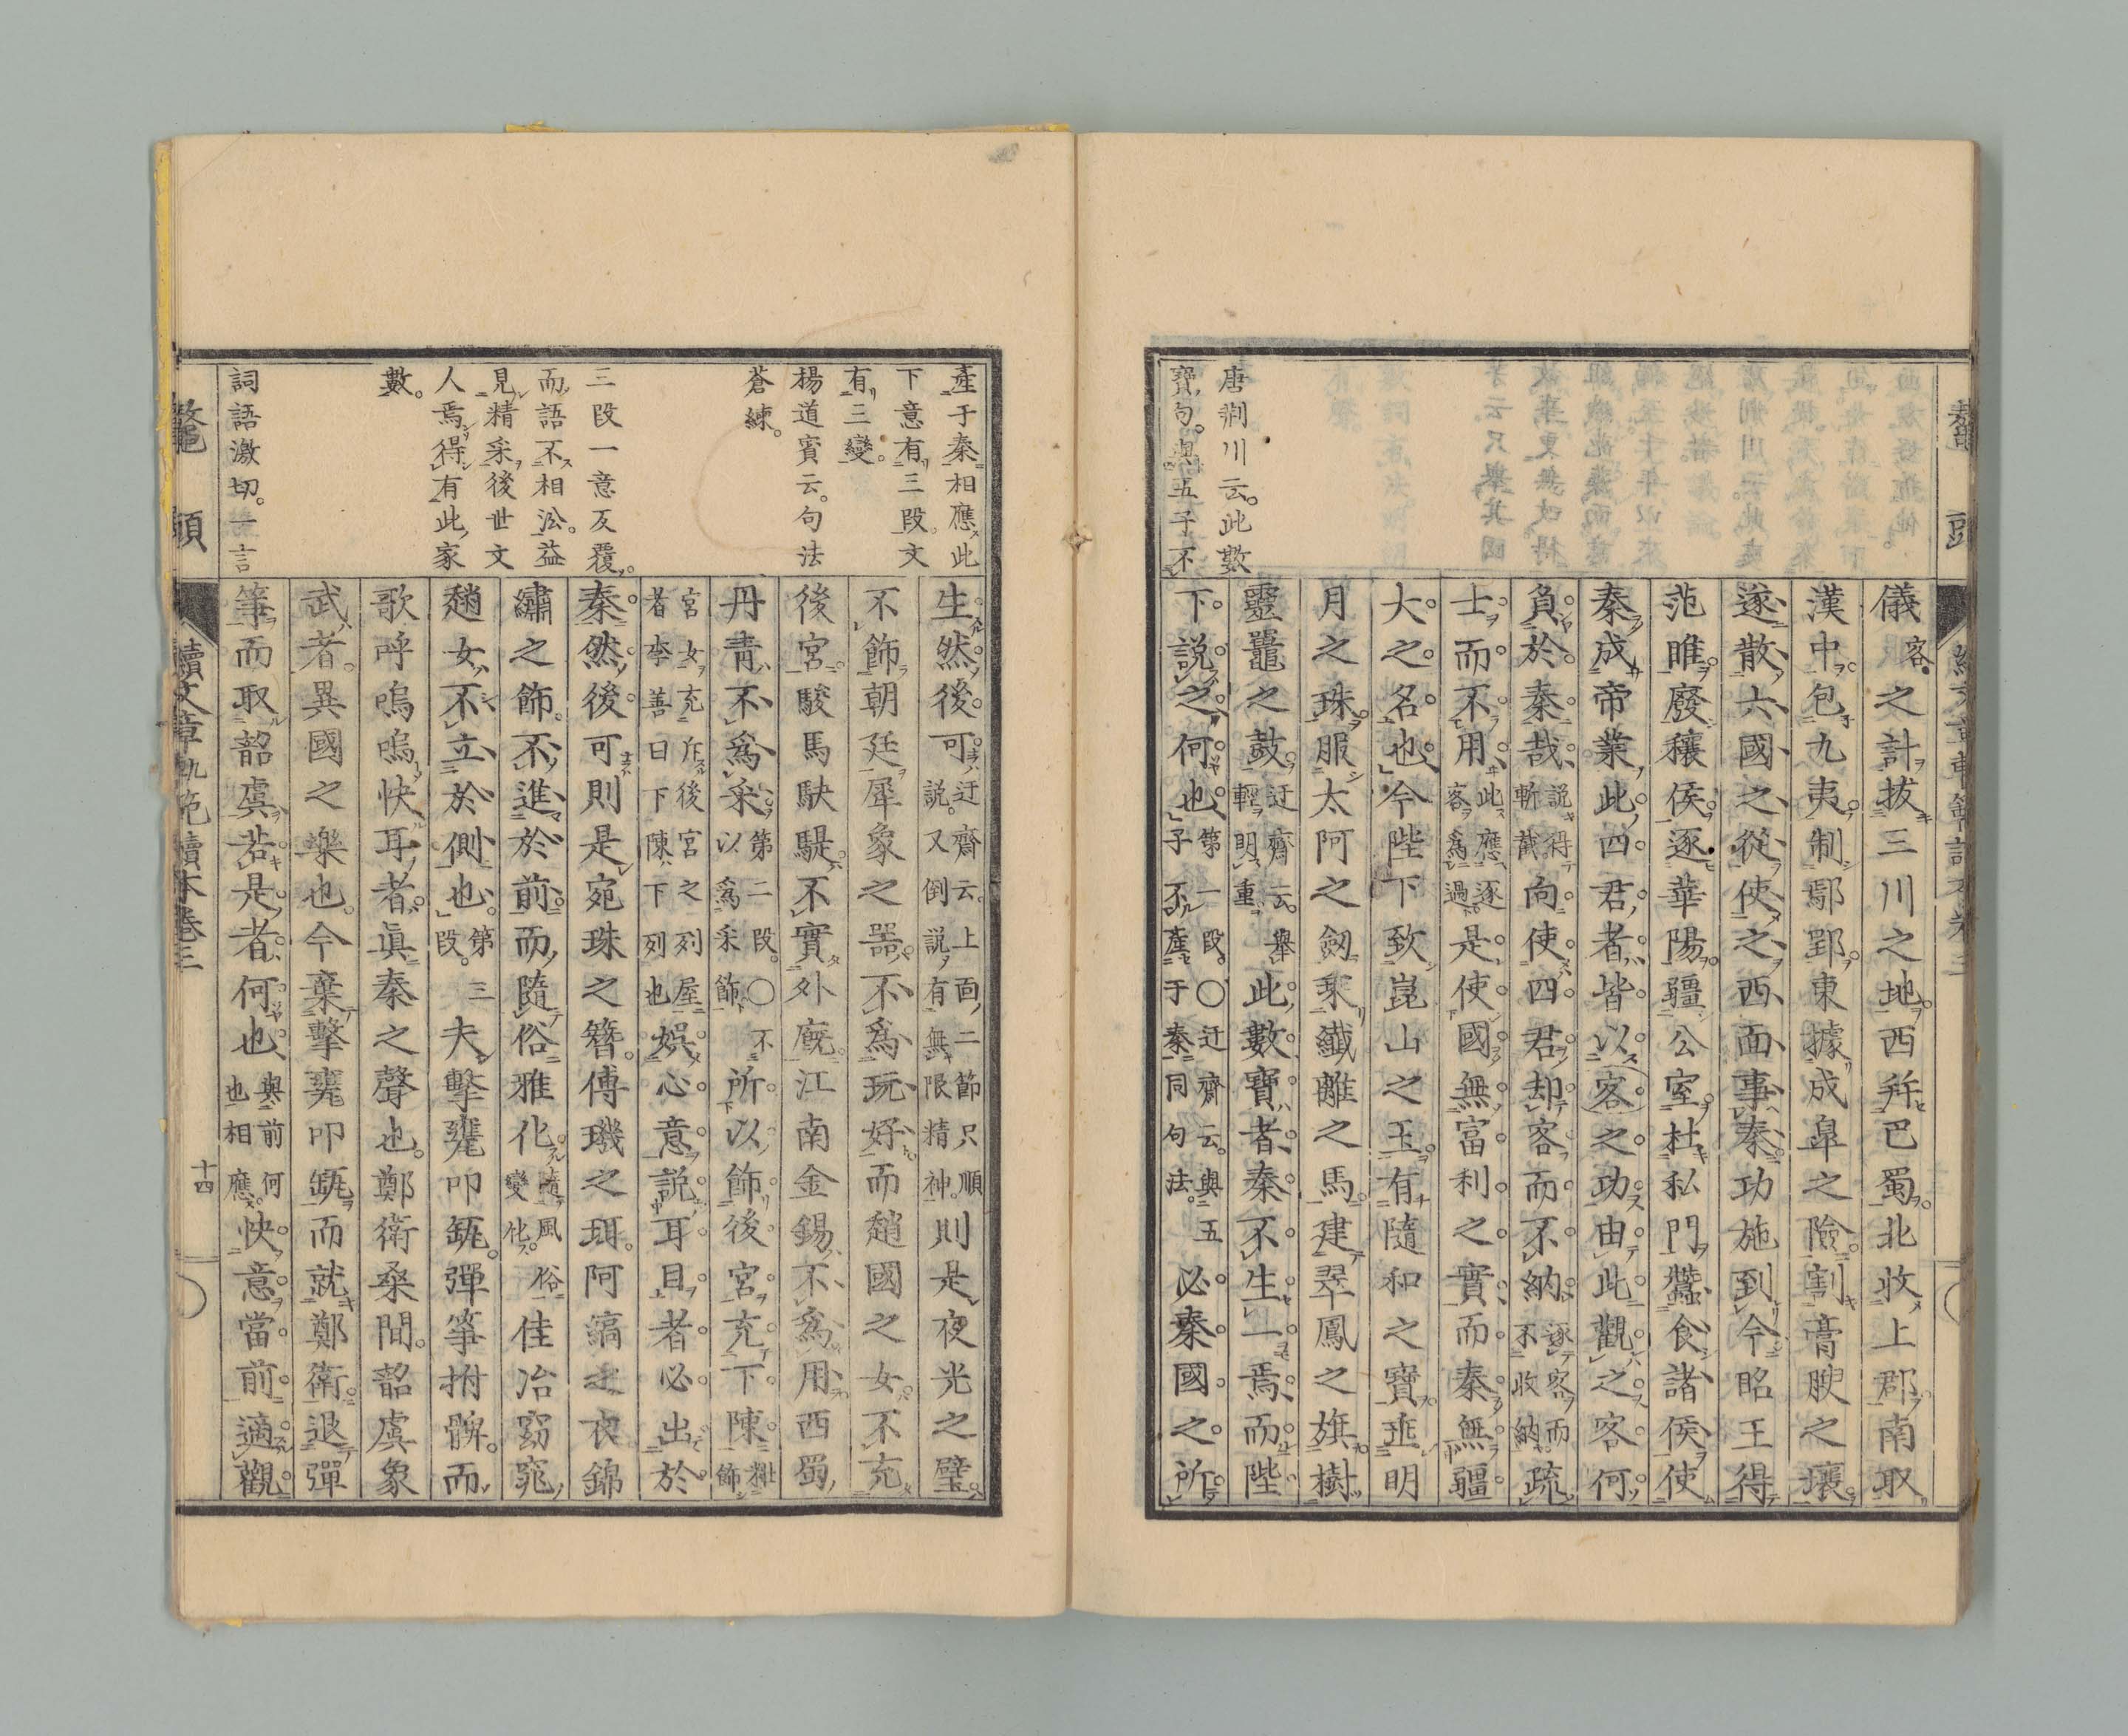 唐荆川云。此數
寶句。與五子不
儀客之計拔三川之地西幷巴蜀北收上郡南取
漢中包九夷制鄢郢東據成皐之險割膏腴之壤
遂散六國之從使之西面事秦功施到今昭王得
范睢廢穰侯逐華陽疆公室杜私門蠶食諸侯使
秦成帝業此四君者皆以客之功由此觀之客何
負於秦哉説得斬截向使四君却客而不納逐客而不收納疏
士而不用此應逐客爲過是使國無富利之實而秦無疆
大之名也今陛下致崑山之玉有隨和之寶垂明
月之珠服太阿之劔乘纎離之馬建翠鳳之旗樹
靈鼉之鼓迂齋云擧輕明重此數寶者秦不生一焉而陛
下説之何也第一段○迂齋云與五子不產于秦同句法必秦國之所
產于秦相應此
下意有三段文
有三變。
楊道賓云。句法
蒼練。
三段一意反覆。
而語不相沿。益
見精采後世文
人焉得有此家
數。
詞語激切。一言
生然後可迂齋云上面二節只順説又倒説有無限精神則是夜光之璧
不飾朝廷犀象之噐不爲玩好而趙國之女不充
後宮駿馬駃騠不實外廐江南金錫不爲用西蜀
丹靑不爲采第二段○不以爲采飾所以飾後宮充下陳粧飾
宮女充斥後宮之列屋者李善曰下陳下列也娯心意説耳目者必出於
秦然後可則是宛珠之簪傅璣之珥阿縞之衣錦
繡之飾不進於前而隨俗雅化隨風俗變化佳冶窈窕
趙女不立於側也第三段夫擊甕叩缻彈箏拊髀而
歌呼嗚嗚快耳者眞秦之聲也鄭衛桑間韶虞象
武者異國之樂也今棄擊甕叩缻而就鄭衛退彈
箏而取韶虞若是者何也與前何也相應快意當前適觀
鼇頭 續文章軌範讀本卷三 十四